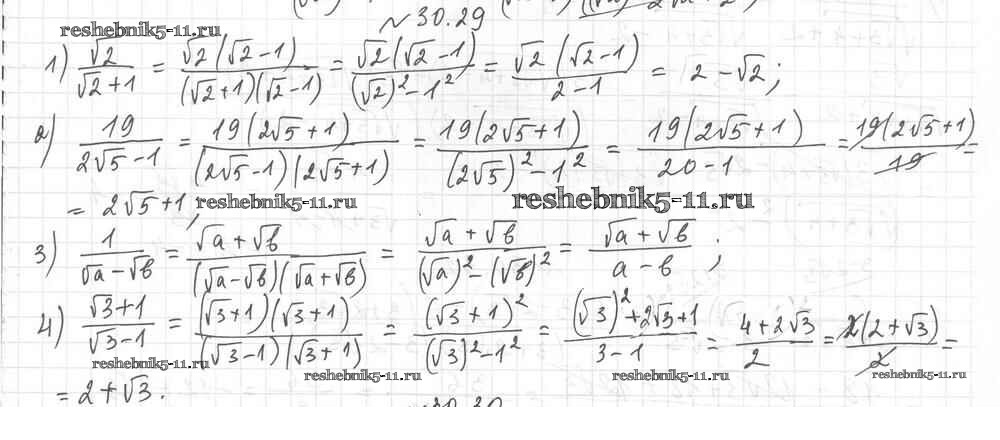 №30.29
reshebnik5-11.ru
1) √2/(√2+1) = √2(√2-1)/((√2+1)(√2-1)) = √2(√2-1)/((√2)²-1²) = √2(√2-1)/(2-1) = 2-√2;
2) 19/(2√5-1) = 19(2√5+1)/((2√5-1)(2√5+1)) = 19(2√5+1)/((2√5)²-1²) = 19(2√5+1)/(20-1) = 19(2√5+1)/19 =
= 2√5+1; reshebnik5-11.ru reshebnik5-11.ru
3) 1/(√a-√b) = (√a+√b)/((√a-√b)(√a+√b)) = (√a+√b)/((√a)²-(√b)²) = (√a+√b)/(a-b);
4) (√3+1)/(√3-1) = (√3+1)(√3+1)/((√3-1)(√3+1)) = (√3+1)²/((√3)²-1²) = ((√3)²+2√3+1)/(3-1) = (4+2√3)/2 = 2(2+√3)/2 =
reshebnik5-11.ru reshebnik5-11.ru reshebnik5-11.ru reshebnik5-11.ru
= 2+√3.